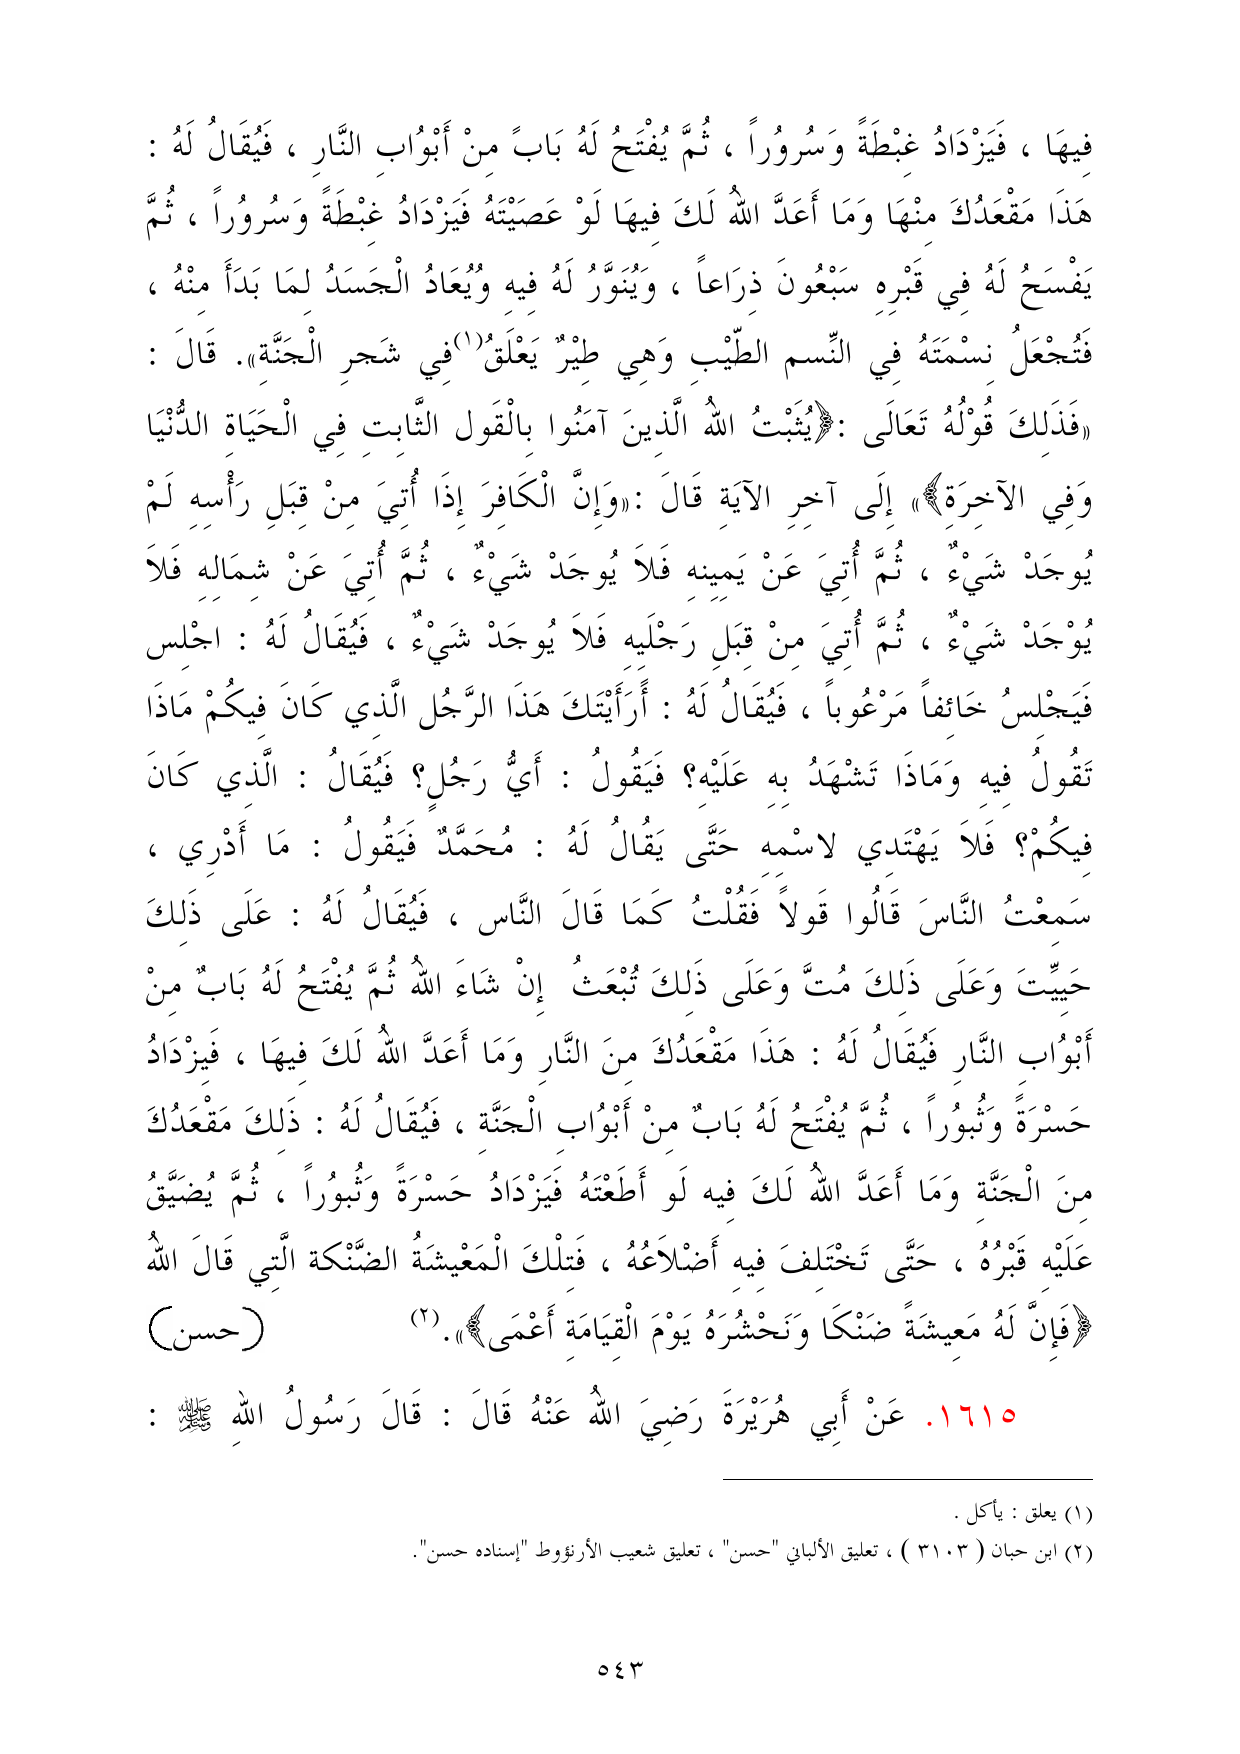 فِيهَا ، فَيَزْدَادُ غِبْطَةً وَسُرُوراً ، ثُمَّ يُفْتَحُ لَهُ بَابً مِنْ أَبْوُابِ النَّارِ ، فَيُقَالُ لَهُ :
هَذَا مَقْعَدُكَ مِنْهَا وَمَا أَعَدَّ اللهُ لَكَ فِيهَا لَوْ عَصَيْتَهُ فَيَزْدَادُ غِبْطَةً وَسُرُوراً ، ثُمَّ
يَفْسَحُ لَهُ فِي قَبْرِهِ سَبْعُونَ ذِرَاعاً ، وَيُنَوَّرُ لَهُ فِيهِ وُيُعَادُ الْجَسَدُ لِمَا بَدَأَ مِنْهُ ،
فَتُجْعَلُ نِسْمَتَهُ فِي النِّسمِ الطّيْبِ وَهِي طِيْرٌ يَعْلَقُ(١)فِي شَجرِ الْجَنَّةِ». قَالَ :
«فَذَلِكَ قُوْلُهُ تَعَالَى :﴿يُثَبْتُ اللهُ الَّذِينَ آمَنُوا بِالْقَولِ الثَّابِتِ فِي الْحَيَاةِ الدُّنْيَا
وَفِي الآخِرَةِ﴾» إِلَى آخِرِ الآيَةِ قَالَ :«وَإِنَّ الْكَافِرَ إِذَا أُتِيَ مِنْ قِبَلِ رَأْسِهِ لَمْ
يُوجَدْ شَيْءٌ ، ثُمَّ أُتِيَ عَنْ يَمِينِهِ فَلاَ يُوجَدْ شَيْءٌ ، ثُمَّ أُتِيَ عَنْ شِمَالِهِ فَلاَ
يُوْجَدْ شَيْءٌ ، ثُمَّ أُتِيَ مِنْ قِبَلِ رَجْلَيِهِ فَلاَ يُوجَدْ شَيْءٌ ، فَيُقَالُ لَهُ : اجْلِس
فَيَجْلِسُ خَائِفاً مَرْعُوباً ، فَيُقَالُ لَهُ : أَرَأَيْتَكَ هَذَا الرَّجُلِ الَّذِي كَانَ فِيكُمْ مَاذَا
تَقُولُ فِيهِ وَمَاذَا تَشْهَدُ بِهِ عَلَيْهِ؟ فَيَقُولُ : أَيُّ رَجُلٍ؟ فَيُقَالُ : الَّذِي كَانَ
فِيكُمْ؟ فَلاَ يَهْتَدِي لاسْمِهِ حَتَّى يَقُالُ لَهُ : مُحَمَّدٌ فَيَقُولُ : مَا أَدْرِي ،
سَمِعْتُ النَّاسَ قَالُوا قَولاً فَقُلْتُ كَمَا قَالَ النَّاس ، فَيُقَالُ لَهُ : عَلَى ذَلِكَ
حَيِيِّتَ وَعَلَى ذَلِكَ مُتَّ وَعَلَى ذَلِكَ تُبْعَثُ إِنْ شَاءَ اللهُ ثُمَّ يُفْتَحُ لَهُ بَابٌ مِنْ
أَبْوُابِ النَّارِ فَيُقَالُ لَهُ : هَذَا مَقْعَدُكَ مِنَ النَّارِ وَمَا أَعَدَّ اللهُ لَكَ فِيهَا ، فَيِزْدَادُ
حَسْرَةً وَثُبوُراً ، ثُمَّ يُفْتَحُ لَهُ بَابٌ مِنْ أَبْوُابِ الْجَنَّةِ ، فَيُقَالُ لَهُ : ذَلِكَ مَقْعَدُكَ
مِنَ الْجَنَّةِ وَمَا أَعَدَّ اللهُ لَكَ فِيه لَو أَطَعْتَهُ فَيَزْدَادُ حَسْرَةً وَثُبوُراً ، ثُمَّ يُضَيَّقُ
عَلَيْهِ قَبْرُهُ ، حَتَّى تَخْتَلِفَ فِيهِ أَضْلاَعُهُ ، فَتِلْكَ الْمَعْيشَةُ الضَّنْكة الَّتِي قَالَ اللهُ
﴿فَإِنَّ لَهُ مَعِيشَةً ضَنْكَا وَنَحْشُرَهُ يَوْمَ الْقِيَامَةِ أَعْمَى﴾».(٢) (حسن)
١٦١٥. عَنْ أَبِي هُرَيْرَةَ رَضِيَ اللهُ عَنْهُ قَالَ : قَالَ رَسُولُ اللهِ ﷺ :
(١) يعلق : يأكل .
(٢) ابن حبان ( ٣١٠٣ ) ، تعليق الألباني "حسن" ، تعليق شعيب الأرنؤوط "إسناده حسن".
٥٤٣